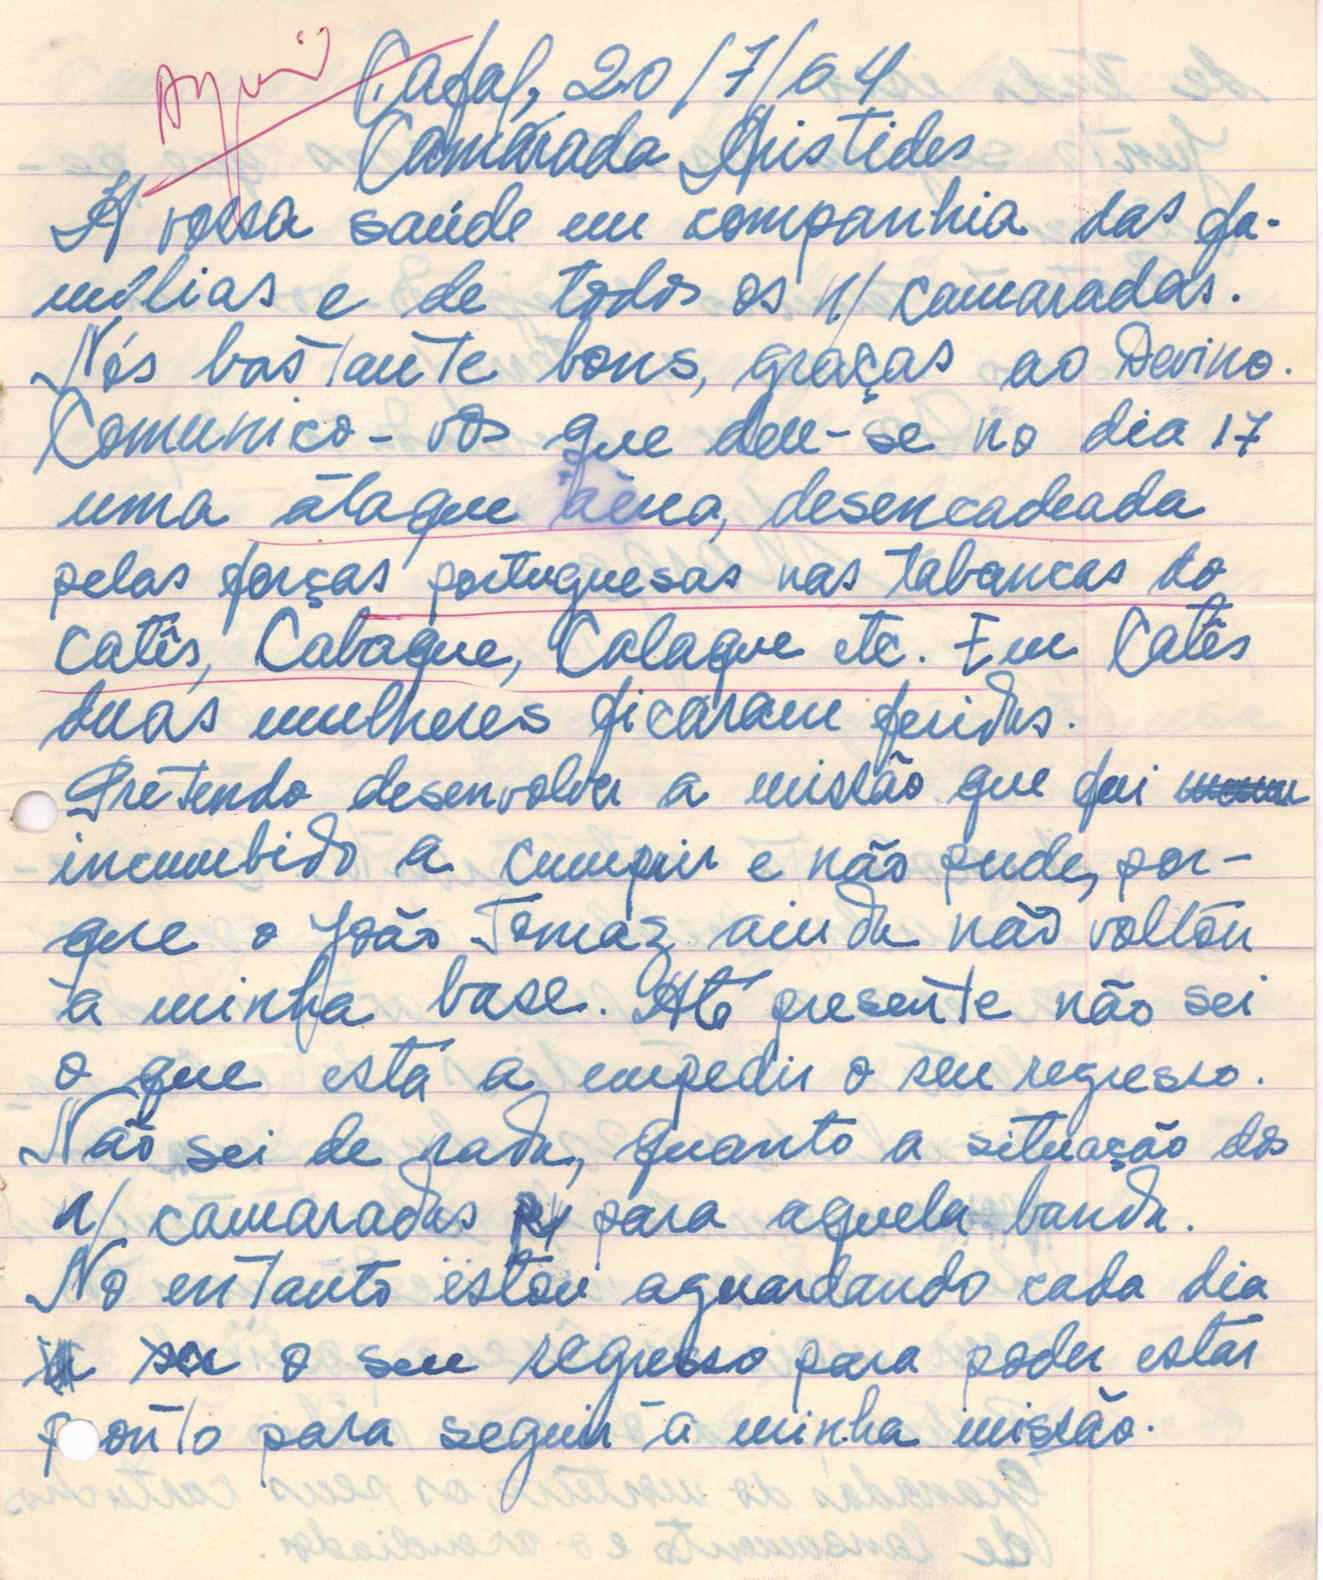 Cafal, 20/7/64
Camarada Aristides
A vossa saúde em companhia das fa-
mílias e de todos os n/ camaradas.
Nós bastante bons, graças ao Devino.
Comunico-vos que deu-se no dia 17
uma ataque aérea, desencadeada
pelas forças portuguesas nas tabancas do
Catês, Cabaque, Calaque etc. Em Catês
duas mulheres ficaram feridas.
Pretendo desenvolver a missão que fui
incumbido a cumprir e não pude, por-
que o João Tomaz ainda não voltou
à minha base. Até presente não sei
o que está a empedir o seu regresso.
Não sei de nada, quanto a situação dos
n/ camaradas para aquela banda.
No entanto estou aguardando cada dia
o seu regresso para poder estar
ponto para seguir à minha missão.